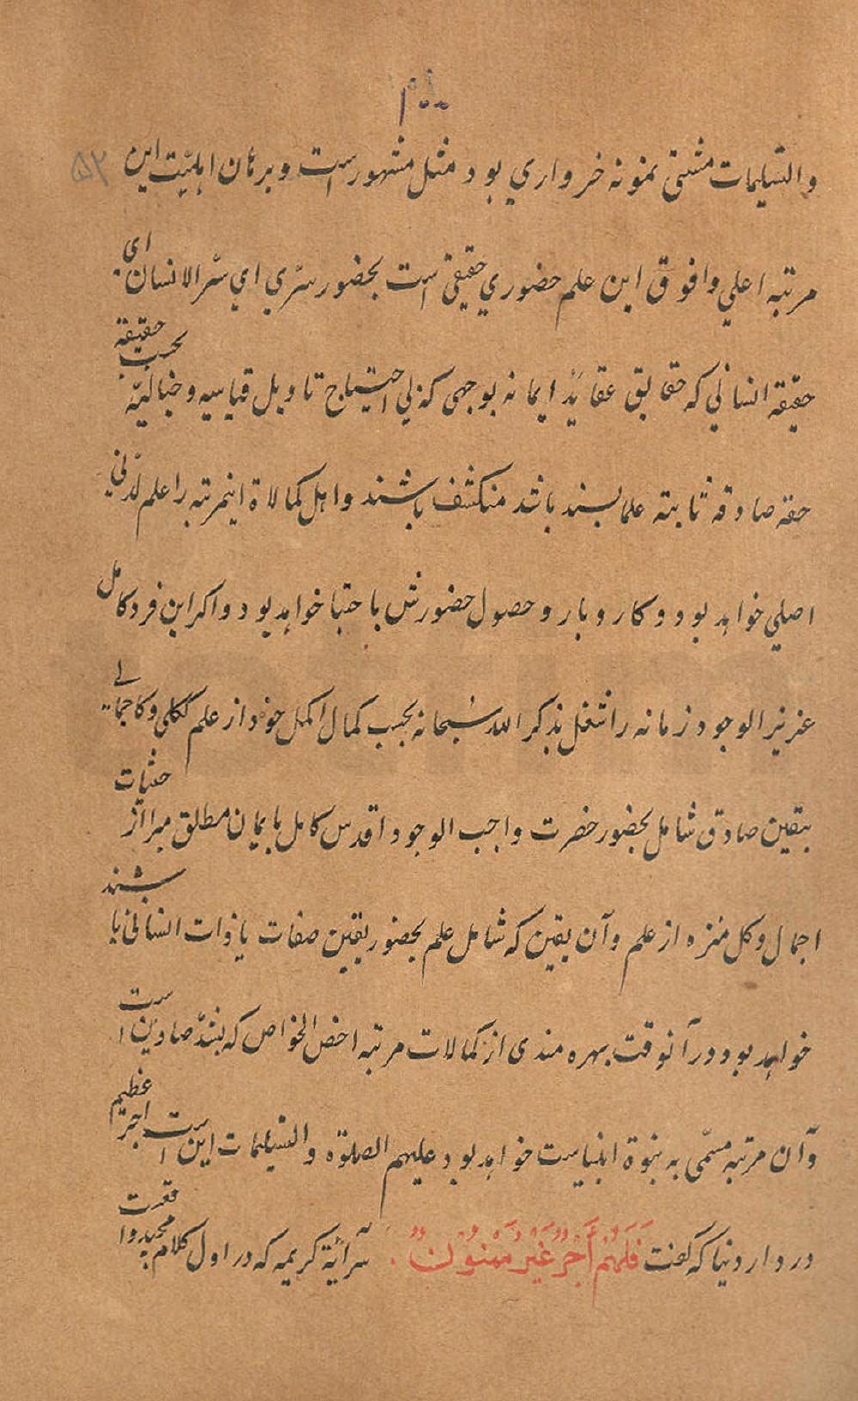 ۱۰۰
۵۲
والتسلیمات مشتی نمونه خرواری بود مثل مشهور است و برهان اهلیّت این
مرتبه اعلی و افوق این علم حضوری حقیقی است بحضور سرّی ای سرّ الانسان ای
حقیقه انسانی که حقایق عقاید ایمانه بوجهی که بی احتیاج تاویل قیاسیه و خیالیّه بحسب حقیقة
حقه صادقه ثابته علما باشد منکشف باشند و اهل کمالاة اینمرتبه را علم لدّنی
اصلی خواهد بود و کار و بار و حصول حضورش با خواهد بود و اکر این فرد کامل
عزیز الوجود زمانه را شغل بذکر الله سبحانه بحسب کمال اکمل خود از علم کلی و
یقین صادق شامل بحضور حضرت واجب الوجود اقدس کامل بایمان مطلق مبرا از
اجمال و کل منزه از علم و آن یقین که شامل علم بحضور یقین صفات یا ذات انسانی باشند
خواهد بود در آنوقت بهره مندی از کمالات مرتبه اخص الخواص که است
و آن مرتبه مسمّی به نبوة انبیاست خواهد بود علیهم الصلوة والتسلیمات این است اجر عظیم
در دار دنیا که گفت فَلَهُمْ أَجْرٌ غَيْرُ مَمْنُونٍ سرّ آیة کریمه که در اول کلام مجید